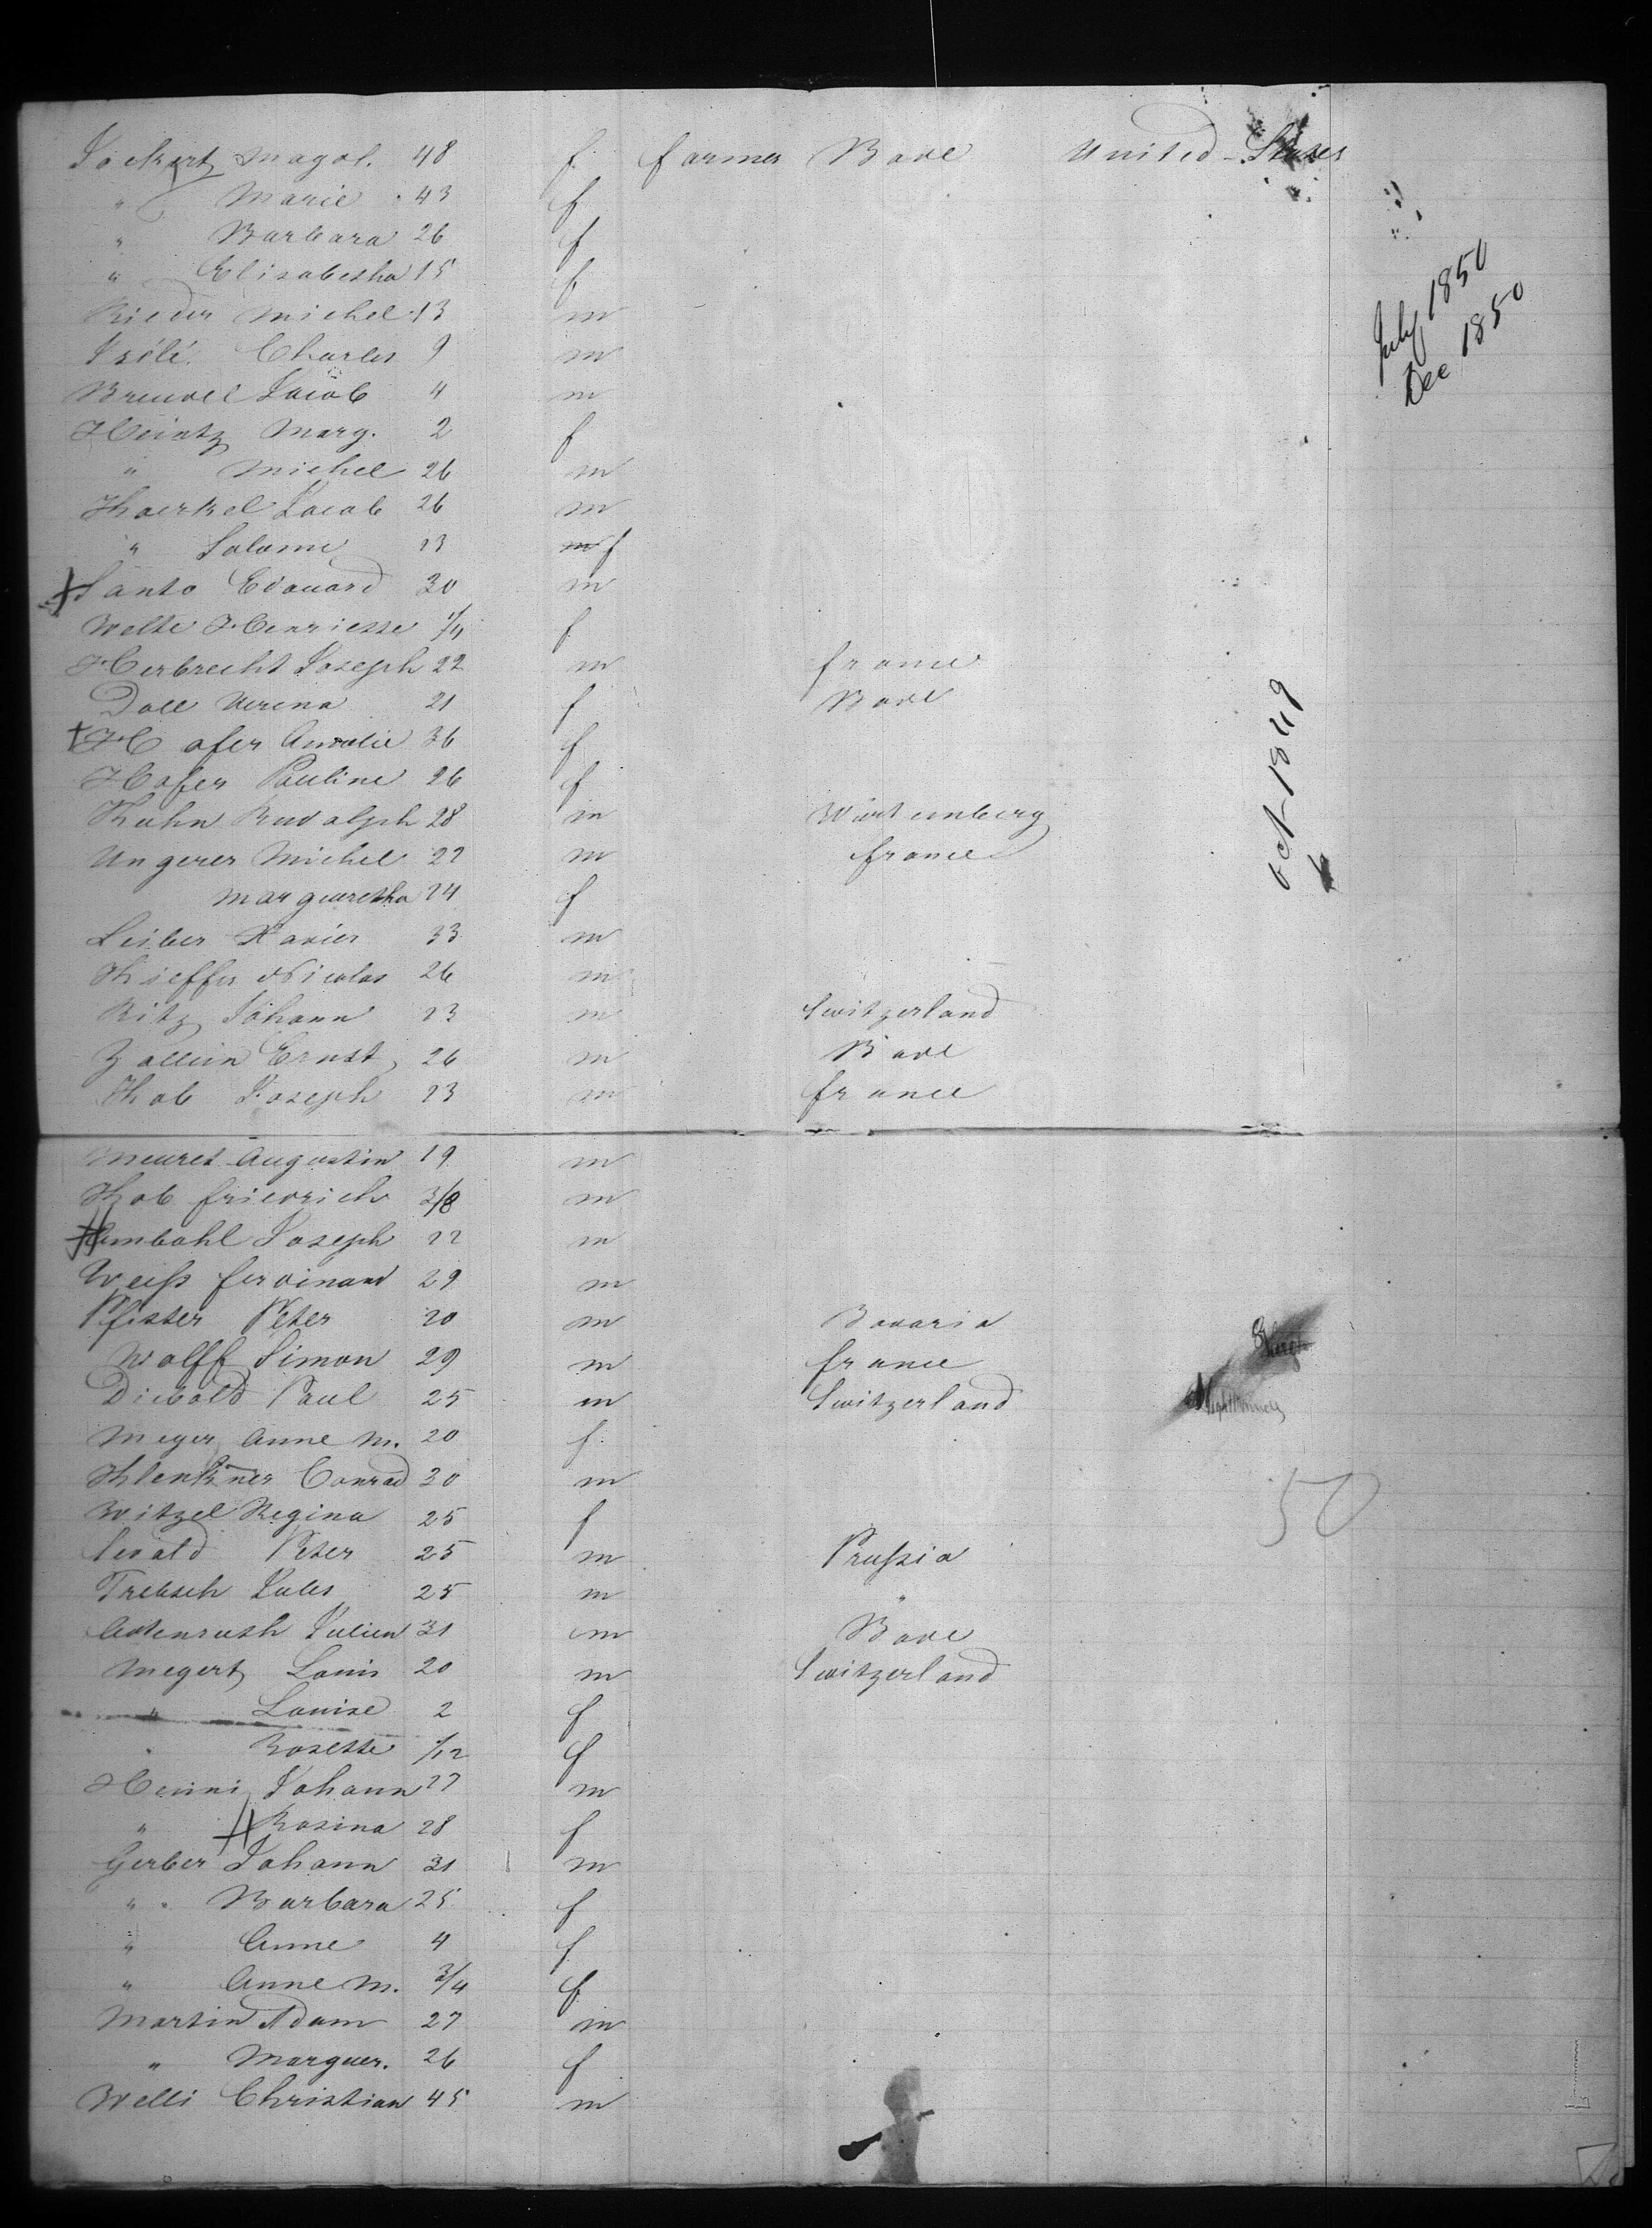 Sockert Magol. 48 f. farmer Bade United-States
" Marie 43 f
" Barbara 26 f
" Elisabetha 15 f
Rieder Michel 13 m
Charles 9 m
Jacob 4 m
Heintz Marg. 2 f
" Michel 26 m
Jacob 26 m
" Salome 23 f
Santo Edouard 30 m
Welte Henriette 1/4 f
Herbrecht Joseph 22 m france
Doll Verena 21 f Bade
Hofer Amalie 36 f
Hofer Pauline 26 f
Kuhn Rudolph 28 m Würtemberg
Ungerer Michel 22 m france
Margaretha 24 f
Leiber Xavier 33 m
Kieffer Nicolas 26 m
Ritz Johann 23 m Switzerland
Zollein Ernst 26 m Bade
Kob Joseph 23 m france
Meuret Augustin 19 m
Kob friedrich 3/8 m
Joseph 22 m
Weiß ferdinand 29 m
Pfister Peter 20 m Bavaria
Wolff Simon 29 m france
Diebold Paul 25 m Switzerland
Meyer Anne M. 20 f
Klenkner Conrad 30 m
Witzel Regina 25 f
Peter 25 m Prußia
Trebsch Jules 25 m "
Julien 31 m Bade
Megert Louis 20 m Switzerland
" Louise 2 f
" Rosette 1/12 f
Henni Johann 27 m
" Rosina 28 f
Gerber Johann 31 m
" Barbara 25 f
" Anne 4 f
" Anne M. 3/4 f
Martin Adam 27 m
" Marguer. 26 f
Welli Christian 45 m
July 1850
Dec 1850
oct 1849
50